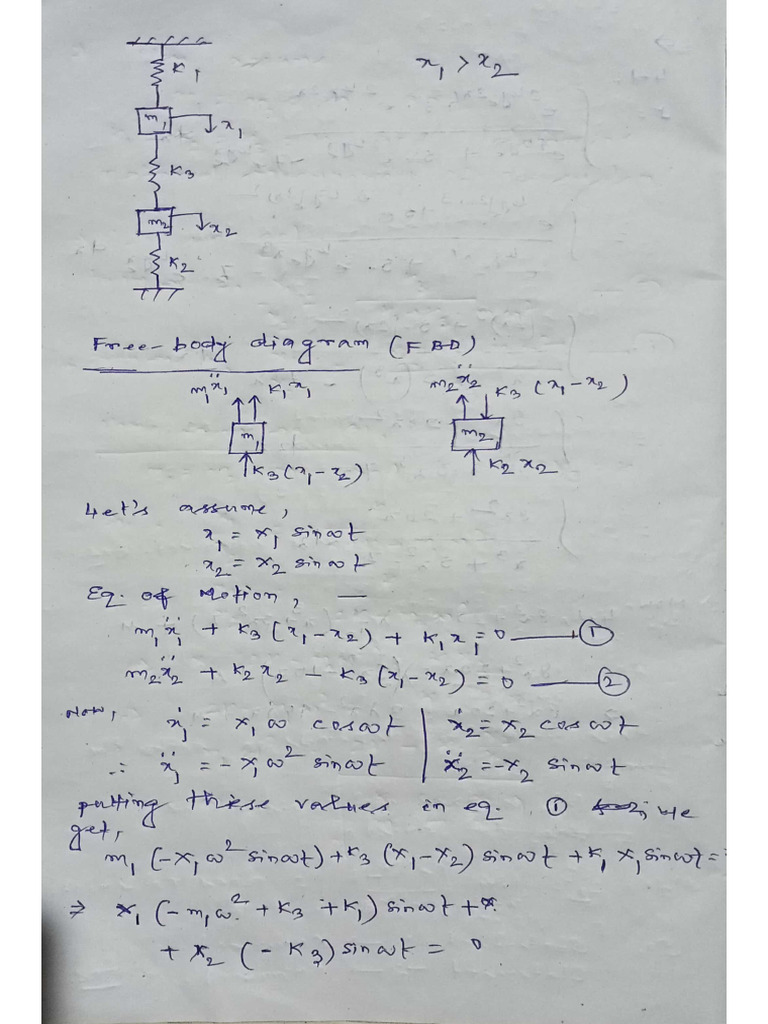 K₁
x₁ > x₂
m₁
x₁
K₃
m₂
x₂
K₂
Free-body diagram (FBD)
m₁ẍ₁ K₁x₁
m₂ẍ₂ K₃ (x₁-x₂)
m₁
m₂
K₃(x₁-x₂)
K₂x₂
Let's assume,
x₁ = X₁ sinωt
x₂ = X₂ sinωt
Eq. of Motion, —
m₁ẍ₁ + K₃(x₁-x₂) + K₁x₁ = 0 — ①
m₂ẍ₂ + K₂x₂ - K₃(x₁-x₂) = 0 — ②
Now, ẋ₁ = X₁ω cosωt | ẋ₂ = X₂ cosωt
∴ ẍ₁ = -X₁ω² sinωt | ẍ₂ = -X₂ sinωt
putting these values in eq. ① we
get,
m₁(-X₁ω² sinωt) + K₃(X₁-X₂) sinωt + K₁X₁ sinωt =
⇒ X₁(-m₁ω² + K₃ + K₁) sinωt +
+ X₂(-K₃) sinωt = 0